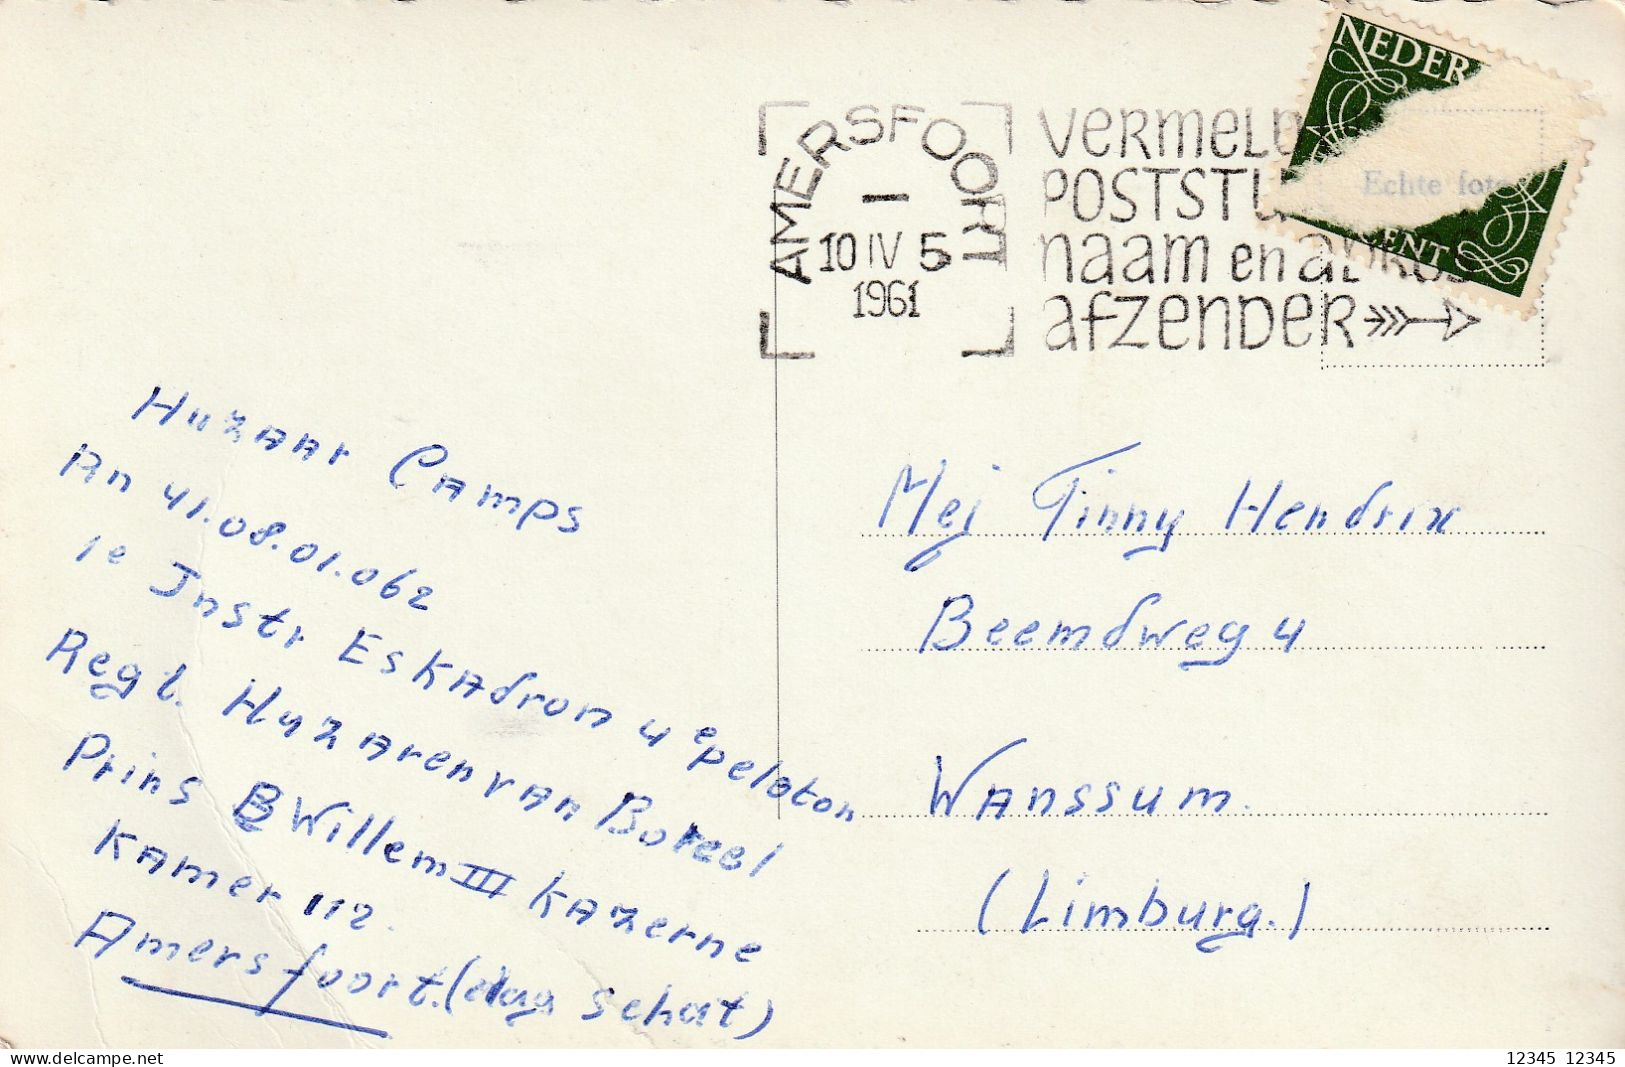 NEDER
CENT
Echte foto
AMERSFOORT
1
10 IV 5
1961
VERMELD
POSTSTU
naam en adres
afzender
Huzaar Camps
An 41.08.01.062
1e Instr Eskadron 4e peloton
Regt. Huzaren van Boreel
Prins Willem III Kazerne
Kamer 112.
Amersfoort. (dag schat)
Mej Tinny Hendrix
Beemdweg 4
Wanssum.
(Limburg.)
delcampe.net
12345 12345